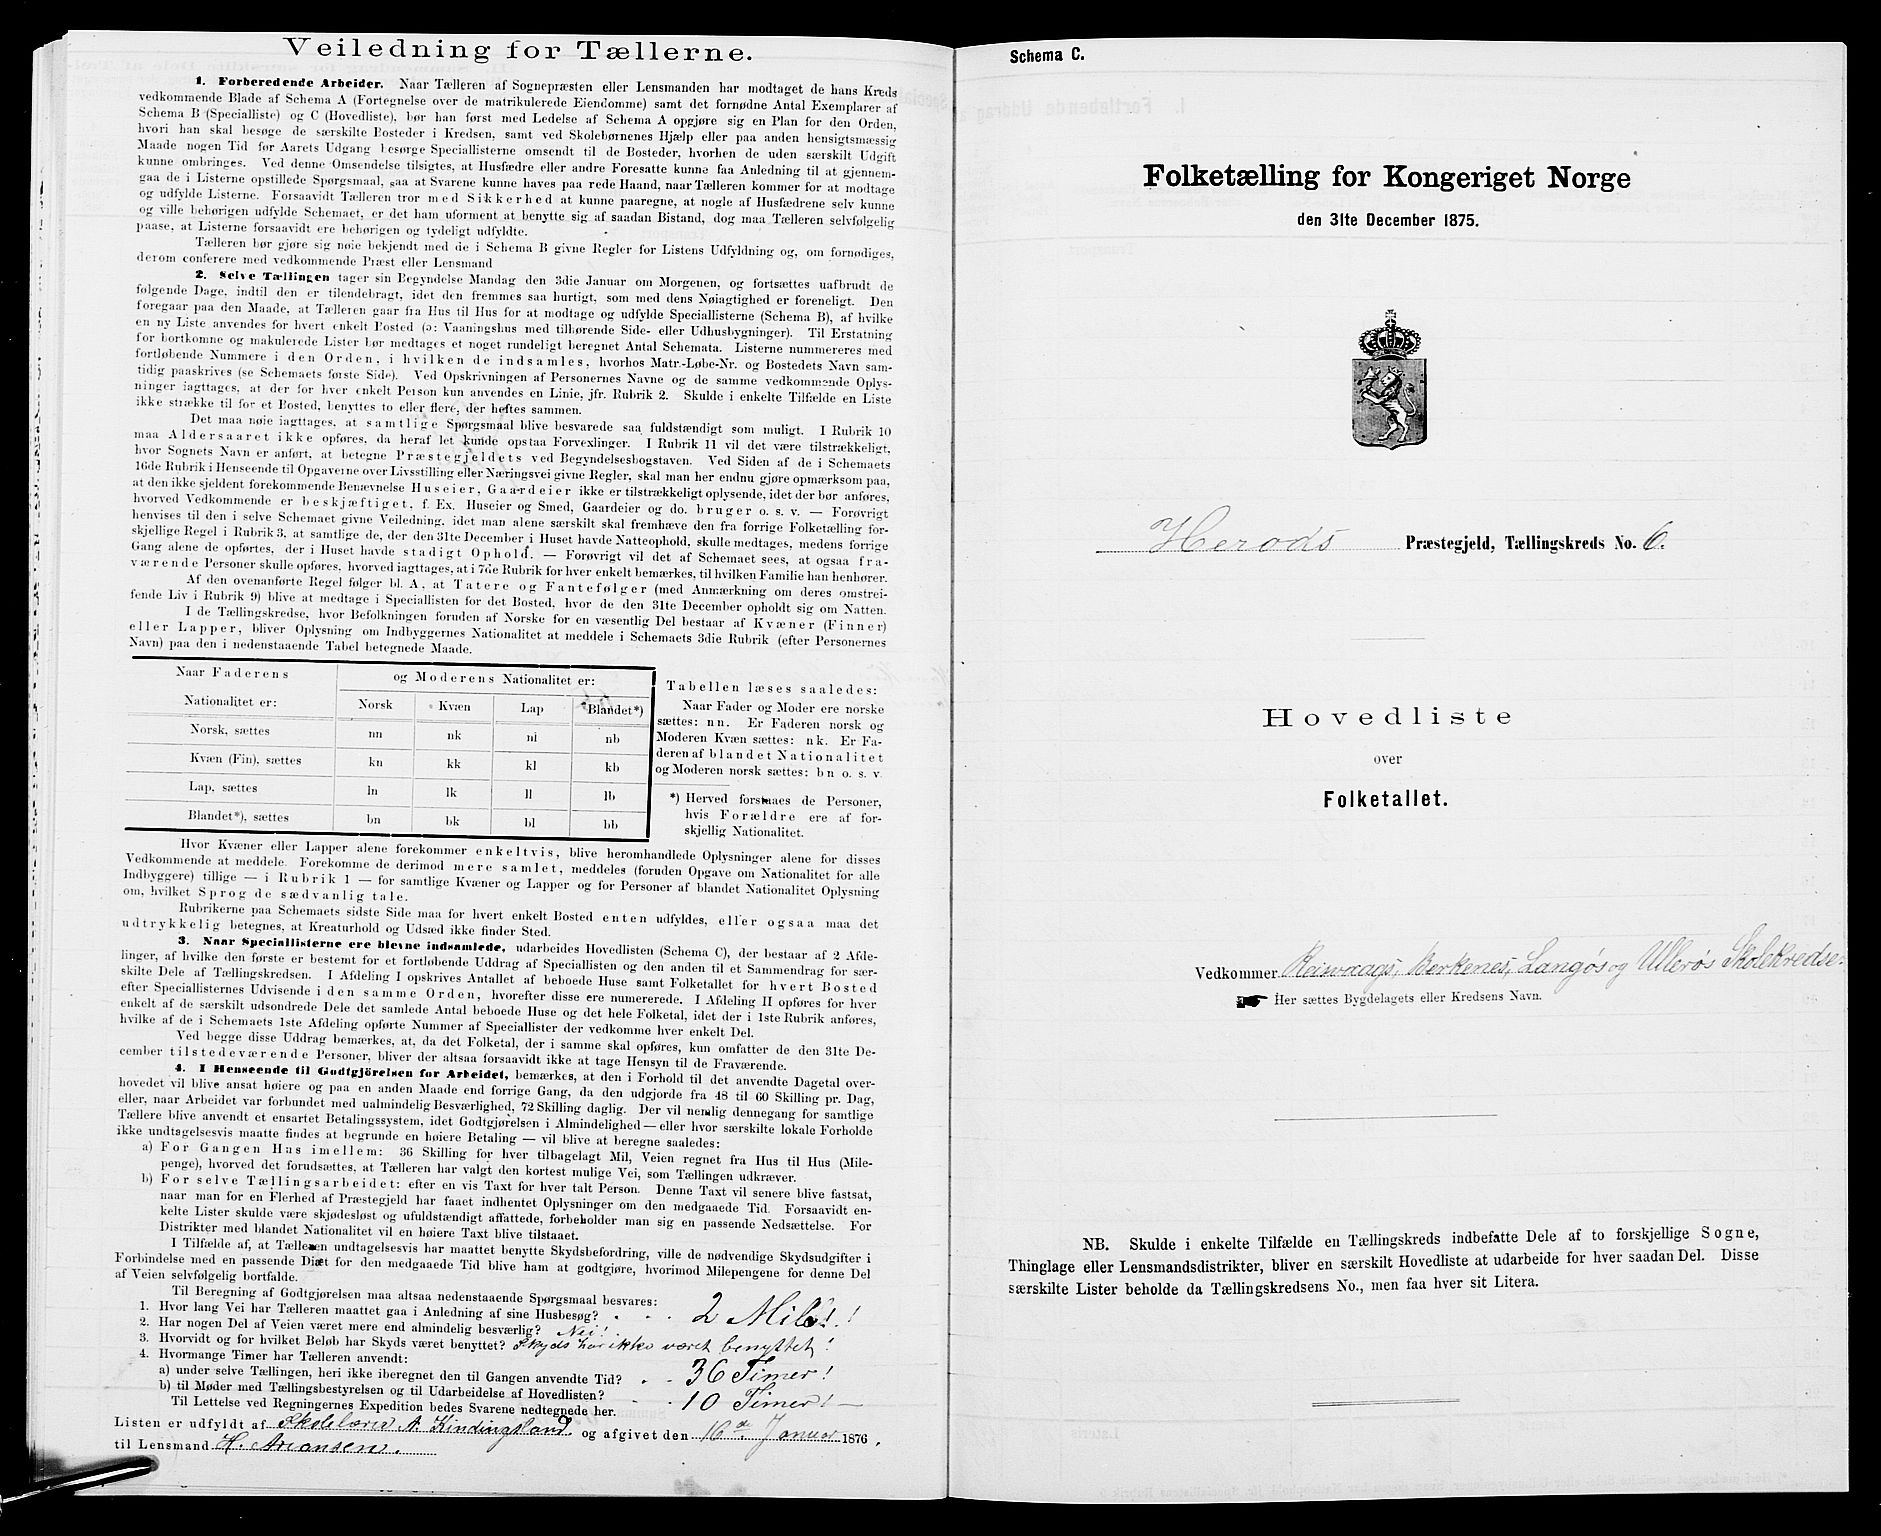 Veiledning for Tællerne.
1. Forberedende Arbeider. Naar Tælleren af Sognepræsten eller Lensmanden har modtaget de hans Kreds
vedkommende Blade af Schema A (Fortegnelse over de matrikulerede Eiendomme) samt det fornødne Antal Exemplarer af
Schema B (Specialliste) og C (Hovedliste), bør han først med Ledelse af Schema A opgjøre sig en Plan for den Orden,
hvori han skal besøge de særskilte Bosteder i Kredsen, samt ved Skolebørnenes Hjælp eller paa anden hensigtsmæssig
Maade nogen Tid før Aarets Udgang besørge Speciallisterne omsendt til de Bosteder, hvorhen de uden særskilt Udgift
kunne ombringes. Ved denne Omsendelse tilsigtes, at Husfædre eller andre Foresatte kunne faa Anledning til at gjennem-
gaa de i Listerne opstillede Spørgsmaal, saa at Svarene kunne haves paa rede Haand, naar Tælleren kommer for at modtage
og udfylde Listerne. Forsaavidt Tælleren tror med Sikkerhed at kunne paaregne, at nogle af Husfædrene selv kunne
og ville behørigen udfylde Schemaet, er det ham uforment at benytte sig af saadan Bistand, dog maa Tælleren selvfølgelig
paase, at Listerne forsaavidt ere behørigen og tydeligt udfyldte.
Tælleren bør gjøre sig nøie bekjendt med de i Schema B givne Regler for Listens Udfyldning og, om fornødiges,
derom conferere med vedkommende Præst eller Lensmand
2. Selve Tællingen tager sin Begyndelse Mandag den 3die Januar om Morgenen, og fortsættes uafbrudt de
følgende Dage, indtil den er tilendebragt, idet den fremmes saa hurtigt, som med dens Nøiagtighed er foreneligt. Den
foregaar paa den Maade, at Tælleren gaar fra Hus til Hus for at modtage og udfylde Speciallisterne (Schema B), af hvilke
en ny Liste anvendes for hvert enkelt Bosted (ɔ: Vaaningshus med tilhørende Side- eller Udhusbygninger). Til Erstatning
for bortkomne og makulerede Lister bør medtages et noget rundeligt beregnet Antal Schemata. Listerne nummereres med
fortløbende Nummere i den Orden, i hvilken de indsamles, hvorhos Matr.-Løbe-Nr. og Bostedets Navn sam-
tidig paaskrives (se Schemaets første Side). Ved Opskrivningen af Personernes Navne og de samme vedkommende Oplys-
ninger iagttages, at der for hver enkelt Person kun anvendes en Linie, jfr. Rubrik 2. Skulde i enkelte Tilfælde en Liste
ikke strække til for et Bosted, benyttes to eller flere, der heftes sammen.
Det maa nøie iagttages, at samtlige Spørgsmaal blive besvarede saa fuldstændigt som muligt. I Rubrik 10
maa Aldersaaret ikke opføres, da heraf let kunde opstaa Forvexlinger. I Rubrik 11 vil det være tilstrækkeligt,
hvor Sognets Navn er anført, at betegne Præstegjeldets ved Begyndelsesbogstaven. Ved Siden af de i Schemaets
16de Rubrik i Henseende til Opgaverne over Livsstilling eller Næringsvei givne Regler, skal man her endnu gjøre opmærksom paa,
at den ikke sjeldent forekommende Benævnelse Huseier, Gaardeier ikke er tilstrækkeligt oplysende, idet der bør anføres,
hvorved Vedkommende er beskjæftiget, f. Ex. Huseier og Smed, Gaardeier og do. bruger o. s. v. — Forøvrigt
henvises til den i selve Schemaet givne Veiledning, idet man alene særskilt skal fremhæve den fra forrige Folketælling for-
skjellige Regel i Rubrik 3, at samtlige de, der den 31te December i Huset havde Natteophold, skulle medtages, medens forrige
Gang alene de opførtes, der i Huset havde stadigt Ophold. — Forøvrigt vil det af Schemaet sees, at ogsaa fra-
værende Personer skulle opføres, hvorved iagttages, at i 7de Rubrik for hver enkelt bemærkes, til hvilken Familie han henhører.
Af den ovenanførte Regel følger bl. A. at Tatere og Fantefølger (med Anmærkning om deres omstrei-
fende Liv i Rubrik 9) blive at medtage i Speciallisten for det Bosted, hvor de den 31te December opholdt sig om Natten.
I de Tællingskredse, hvor Befolkningen foruden af Norske for en væsentlig Del bestaar af Kvæner (Finner)
eller Lapper, bliver Oplysning om Indbyggernes Nationalitet at meddele i Schemaets 3die Rubrik (efter Personernes
Navn) paa den i nedenstaaende Tabel betegnede Maade.
Naar Faderens
Nationalitet er:
og Moderens Nationalitet er:
Norsk Kvæn Lap Blandet*)
Norsk, sættes nn nk nl nb
Kvæn (Fin), sættes kn kk kl kb
Lap, sættes ln lk ll lb
Blandet*), sættes bn bk bl bb
Tabellen læses saaledes:
Naar Fader og Moder ere norske
sættes: nn. Er Faderen norsk og
Moderen Kvæn sættes: nk. Er Fa-
deren af blandet Nationalitet
og Moderen norsk sættes: bn o. s. v.
*) Herved forstaaes de Personer,
hvis Forældre ere af for-
skjellig Nationalitet.
Hvor Kvæner eller Lapper alene forekommer enkeltvis, blive heromhandlede Oplysninger alene for disses
Vedkommende at meddele. Forekomme de derimod mere samlet, meddeles (foruden Opgave om Nationalitet for alle
Indbyggere) tillige — i Rubrik 1 — for samtlige Kvæner og Lapper og for Personer af blandet Nationalitet Oplysning
om, hvilket Sprog de sædvanlig tale.
Rubrikerne paa Schemaets sidste Side maa for hvert enkelt Bosted enten udfyldes, eller ogsaa maa det
udtrykkelig betegnes, at Kreaturhold og Udsæd ikke finder Sted.
3. Naar Speciallisterne ere blevne indsamlede, udarbeides Hovedlisten (Schema C), der bestaar af 2 Afde-
linger, af hvilke den første er bestemt for et fortløbende Uddrag af Speciallisten og den anden til et Sammendrag for sær-
skilte Dele af Tællingskredsen. I Afdeling I opskrives Antallet af beboede Huse samt Folketallet for hvert Bosted
efter Speciallisternes Udvisende i den samme Orden, hvorefter disse ere numererede. I Afdeling II opføres for hver
enkelt af de særskilt udsondrede Dele det samlede Antal beboede Huse og det hele Folketal, idet der i 1ste Rubrik anføres,
hvilke af de i Schemaets 1ste Afdeling opførte Nummer af Speciallister der vedkomme hver enkelt Del.
Ved begge disse Uddrag bemærkes, at, da det Folketal, der i samme skal opføres, kun omfatter de den 31te De-
cember tilstedeværende Personer, bliver der altsaa forsaavidt ikke at tage Hensyn til de Fraværende.
4. I Henseende til Godtgjörelsen for Arbeidet, bemærkes, at den i Forhold til det anvendte Dagetal over-
hovedet vil blive ansat høiere og paa en anden Maade end forrige Gang, da den udgjorde fra 48 til 60 Skilling pr. Dag,
eller, naar Arbeidet var forbundet med ualmindelig Besværlighed, 72 Skilling daglig. Der vil nemlig dennegang for samtlige
Tællere blive anvendt et ensartet Betalingssystem, idet Godtgjørelsen i Almindelighed — eller hvor særskilte lokale Forholde
ikke undtagelsesvis maatte findes at begrunde en høiere Betaling — vil blive at beregne saaledes:
a) For Gangen Hus imellem: 36 Skilling for hver tilbagelagt Mil, Veien regnet fra Hus til Hus (Mile-
penge), hvorved det forudsættes, at Tælleren har valgt den kortest mulige Vei, som Tællingen udkræver.
b) For selve Tællingsarbeidet: efter en vis Taxt for hver talt Person. Denne Taxt vil senere blive fastsat,
naar man for en Flerhed af Præstegjeld har faaet indhentet Oplysninger om den medgaaede Tid. Forsaavidt en-
kelte Lister skulde være skjødesløst og ufuldstændigt affattede, forbeholder man sig en passende Nedsættelse. For
Distrikter med blandet Nationalitet vil en høiere Taxt blive tilstaaet.
I Tilfælde af, at Tælleren undtagelsesvis har maattet benytte Skydsbefordring, ville de nødvendige Skydsudgifter i
Forbindelse med en passende Diæt for den medgaaede Tid blive ham at godtgjøre, hvorimod Milepengene for denne Del
af Veien selvfølgelig bortfalde.
Til Beregning af Godtgjørelsen maa altsaa nedenstaaende Spørgsmaal besvares:
1. Hvor lang Vei har Tælleren maattet gaa i Anledning af sine Husbesøg? 2 Mile!
2. Har nogen Del af Veien været mere end almindelig besværlig? Nei!
3. Hvorvidt og for hvilket Beløb har Skyds været benyttet? Skyds har ikke været benyttet!
4. Hvormange Timer har Tælleren anvendt:
a) under selve Tællingen, heri ikke iberegnet den til Gangen anvendte Tid? 36 Timer!
b) til Møder med Tællingsbestyrelsen og til Udarbeidelse af Hovedlisten? 10 Timer! —
Til Lettelse ved Regningernes Expedition bedes Svarene nedtegnede her.
Listen er udfyldt af Skolelærer A. Kindingsland. og afgivet den 16de Januar 1876,
til Lensmand H. Arians­en.
Schema C.
Folketælling for Kongeriget Norge
den 31te December 1875.
Herods Præstegjeld, Tællingskreds No. 6.
Hovedliste
over
Folketallet.
Vedkommer Reiwaags, Berkenes, Langøs og Ullerøs Skolekredse.
Her sættes Bygdelagets eller Kredsens Navn.
NB. Skulde i enkelte Tilfælde en Tællingskreds indbefatte Dele af to forskjellige Sogne,
Thinglage eller Lensmandsdistrikter, bliver en særskilt Hovedliste at udarbeide for hver saadan Del. Disse
særskilte Lister beholde da Tællingskredsens No., men faa hver sit Litera.